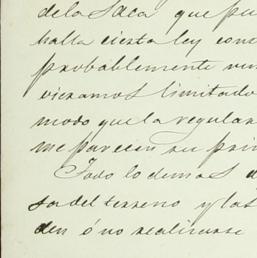 de la Saca que pu
halla cierta ley con
probablemente nun
vieramos limitado
modo que la regular
me parecen su prin
Todo lo demas d
sa del terreno y las
den ó no realizarse